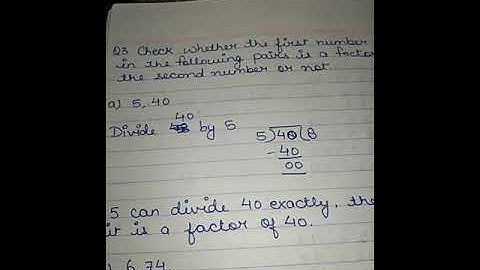 Q3 Check whether the first number
in the following pairs is a factor
the second number or not.
a) 5, 40
40
Divide by 5
5)40(8
-40
00
5 can divide 40 exactly, the
it is a factor of 40.
) 6, 74